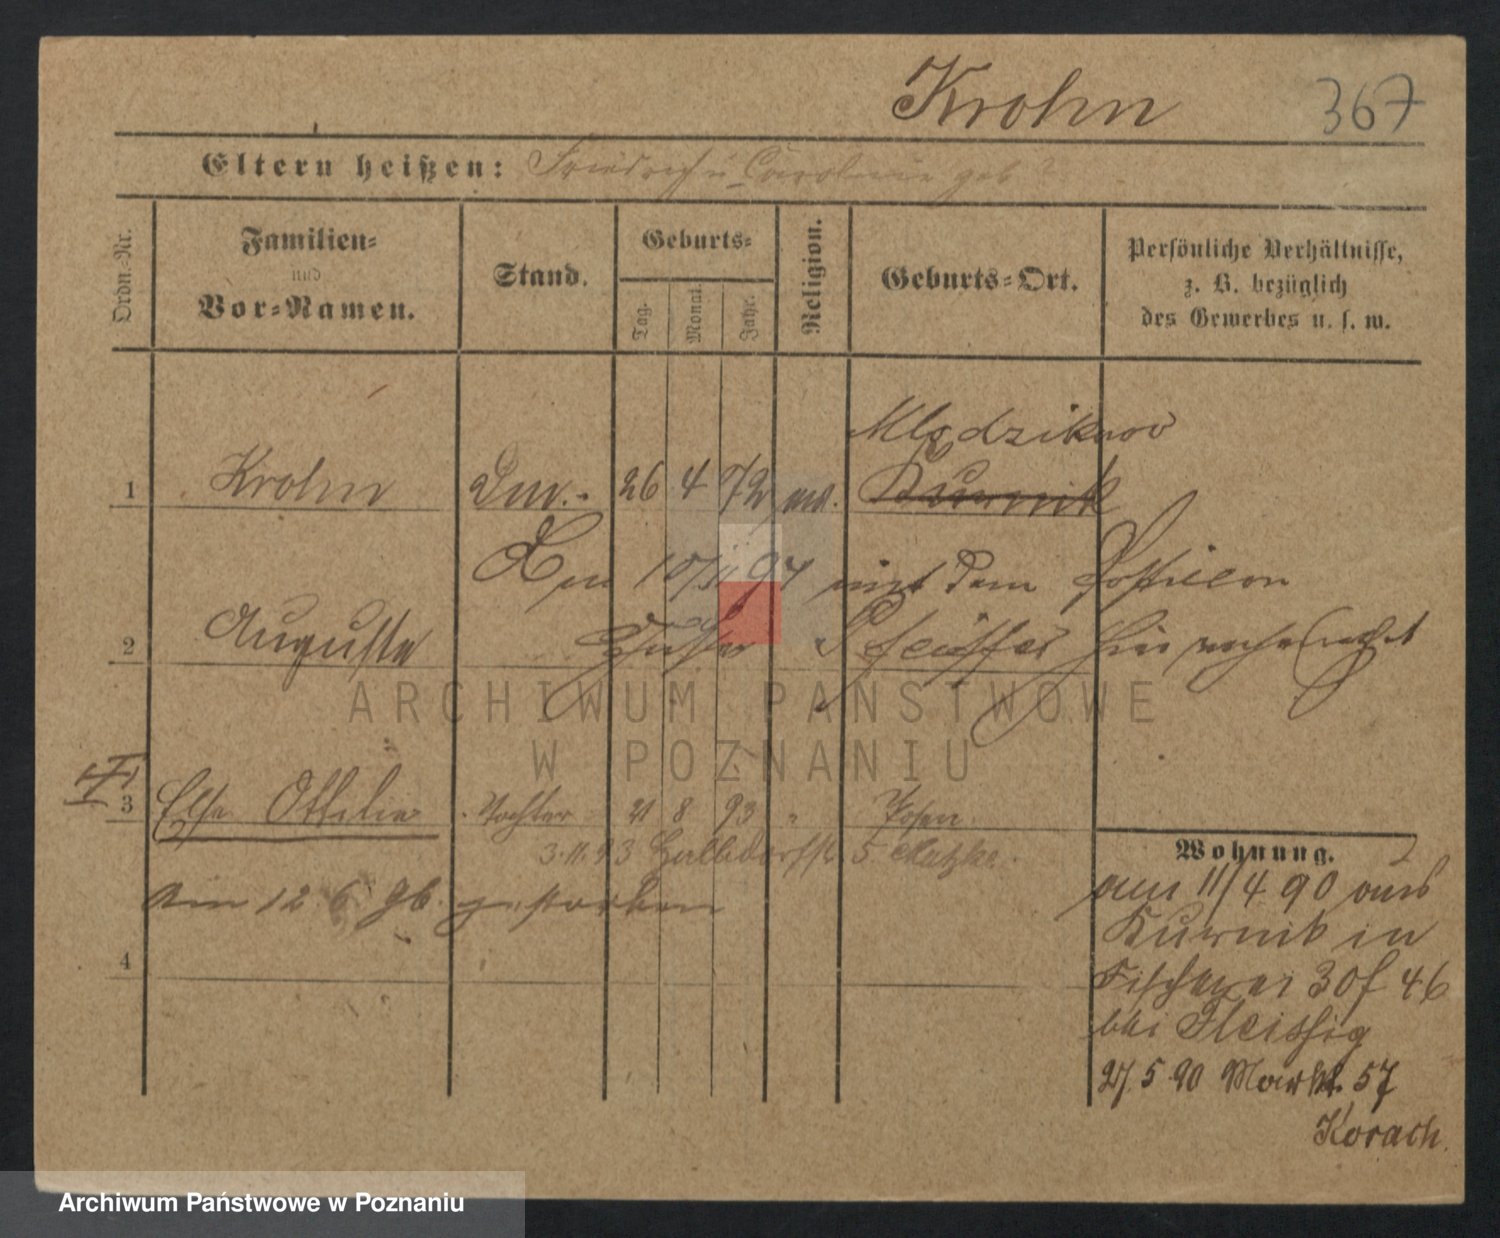 Krohn 367
Eltern heißen: Friedrich u. Caroline geb ?
Ordn.-Nr.
Familien-
und
Vor-Namen.
Stand.
Geburts-
Tag.
Monat.
Jahr.
Religion.
Geburts-Ort.
Persönliche Verhältnisse,
z. B. bezüglich
des Gewerbes u. s. w.
Mlodzikowo
1 Krohn 26 4 72 Kurnik
10/11 97 mit dem Postillon
2 Auguste Gustav Pfeiffer
3 Else Ottilie Tochter 21 8 93 " Posen
3.11.93 Halbdorfstr 5
am 12 6 96. gestorben
4
Wohnung.
am 11/4 90 aus
Kurnik in
Fischerei 30 f 46
bei Fleissig
27.5 90 Markt. 57
Korach.
ARCHIWUM PAŃSTWOWE
W POZNANIU
Archiwum Państwowe w Poznaniu